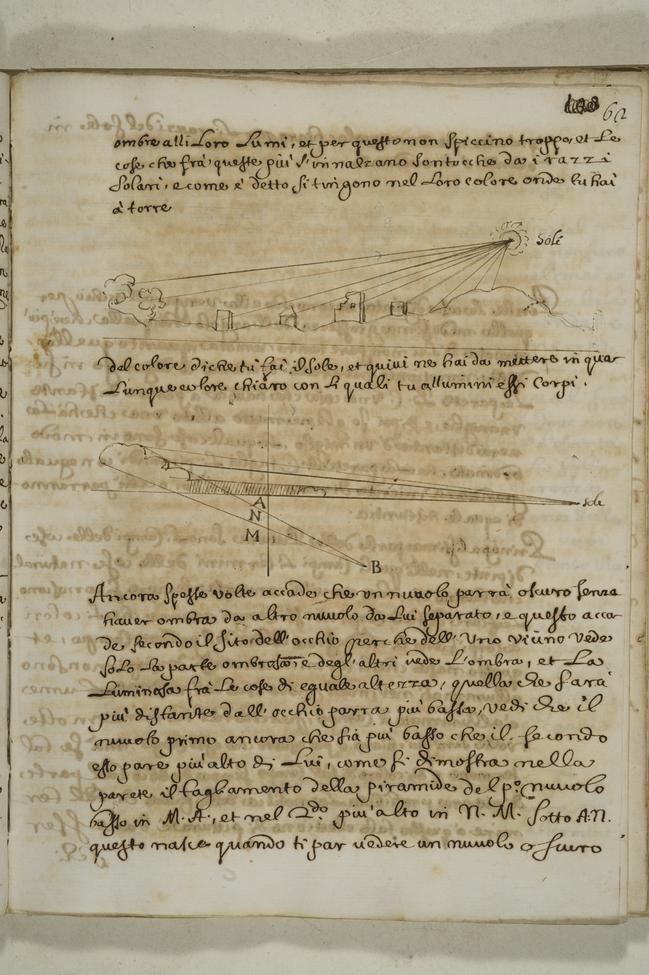 62
ombre alli Loro Lumi, et per questo non spiccino troppo, et Le
cose che frà queste più s'innalzano son tocche da i razzi
solari, e come è detto si tingono nel Loro colore onde tu hai
à torre
Sole
del colore di che tù fai il sole, et quivi ne hai da mettere in qua
Lunque colore chiaro con li quali tu allumini essi Corpi.
sole
A
N
M
B
Ancora spesse volte accade che un nuvolo parrà oscuro senza
haver ombra da altro nuvolo da Lui separato, e questo acca
de secondo il sito dell'occhio perche dell'Uno vicino vede
solo La parte ombrosa e degl'altri vede L'ombra, et La
Luminosa frà Le cose di eguale altezza, quella che sarà
più distante dall'occhio parra più bassa, vedi che il
nuvolo primo ancora che sia più basso che il secondo
esso pare più alto di Lui, come si dimostra nella
parete il tagliamento della piramide del p.º nuvolo
basso in M.A, et nel 2.do più alto in N.M. sotto A.N.
questo nasce quando ti par vedere un nuvolo oscuro